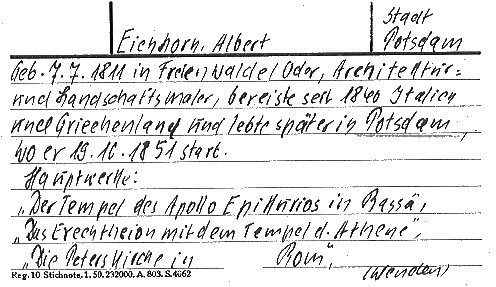 Stadt
Eichhorn, Albert Potsdam
Geb. 7.7.1811 in Freienwalde/Oder, Architektur=
und Landschaftsmaler, bereiste seit 1840 Italien
und Griechenland und lebte später in Potsdam,
wo er 19.10.1851 starb.
Hauptwerke:
„Der Tempel des Apollo Epikurios in Bassä",
„Das Erechtheion mit dem Tempel d. Athene",
„Die Peterskirche in Rom",
(Wenden)
Reg. 10. Stichnote, 1. 50. 232000. A. 803. S. 4662